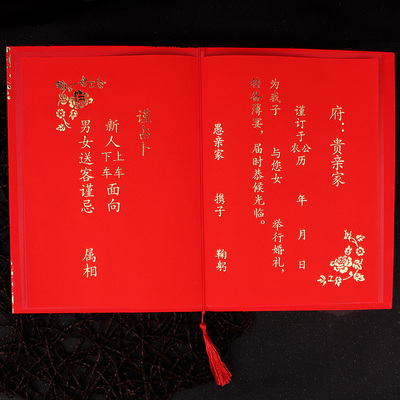 府：贵亲家
谨订于公农历 年 月 日
为我子 与您女 举行婚礼，
备薄宴，届时恭候光临。
愚亲家 携子 鞠躬
谨 卜
新人上车下车面向
男女送客谨忌 属相